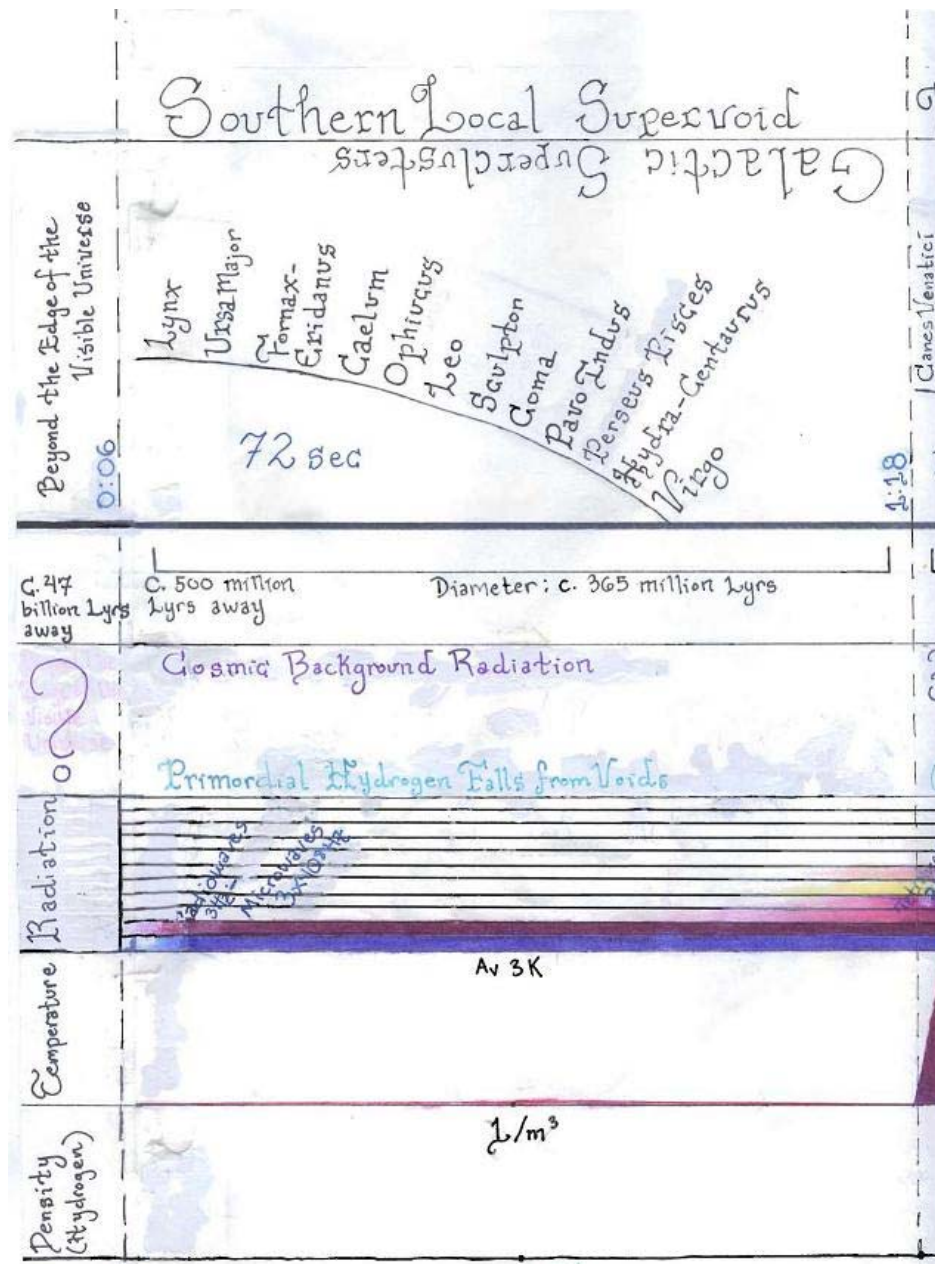 Southern Local Supervoid
Galactic Superclusters
Beyond the Edge of the
Visible Universe
0:06
Lynx
Ursa Major
Fornax-
Eridanus
Caelum
Ophiucus
Leo
Sculptor
Coma
Pavo Indus
Perseus Pisces
Hydra-Centaurus
Virgo
72 sec
1:18
Canes Venatici
C. 47
billion Lyrs
away
C. 500 million
Lyrs away
Diameter: c. 365 million Lyrs
Cosmic Background Radiation
?
Primordial Hydrogen Falls from Voids
Radiation
Radiowaves
3Hz-
Microwaves
3x10⁸Hz
Av 3K
Temperature
1/m³
Density
(Hydrogen)